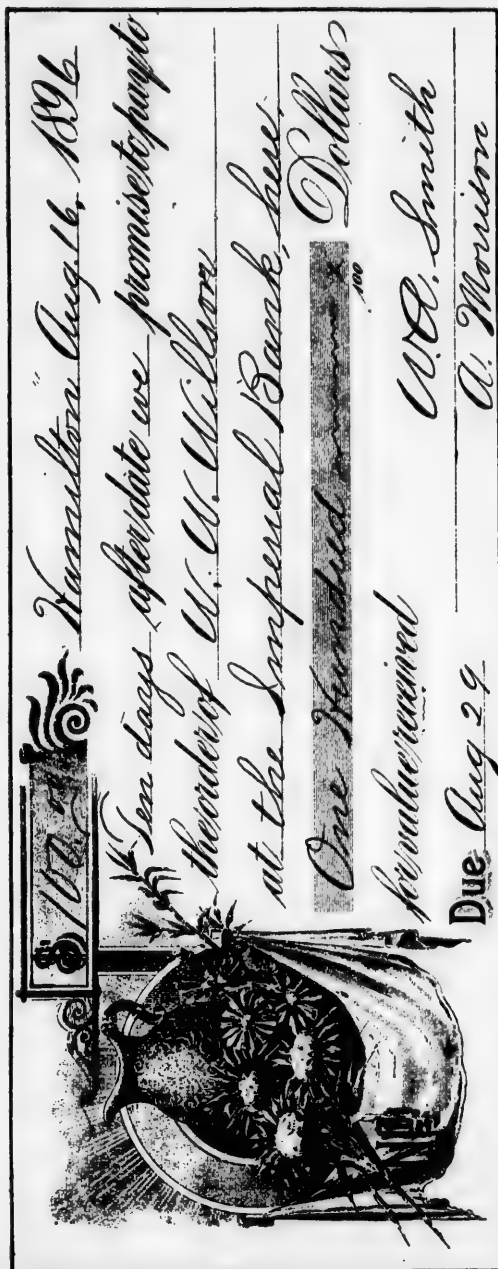 $100.00 Hamilton Aug. 16, 1896
Ten days after date we promise to pay to
the order of W. W. Willson
at the Imperial Bank, here,
One Hundred x/100 Dollars
for value received W. A. Smith
Due Aug 29 A. Morrison